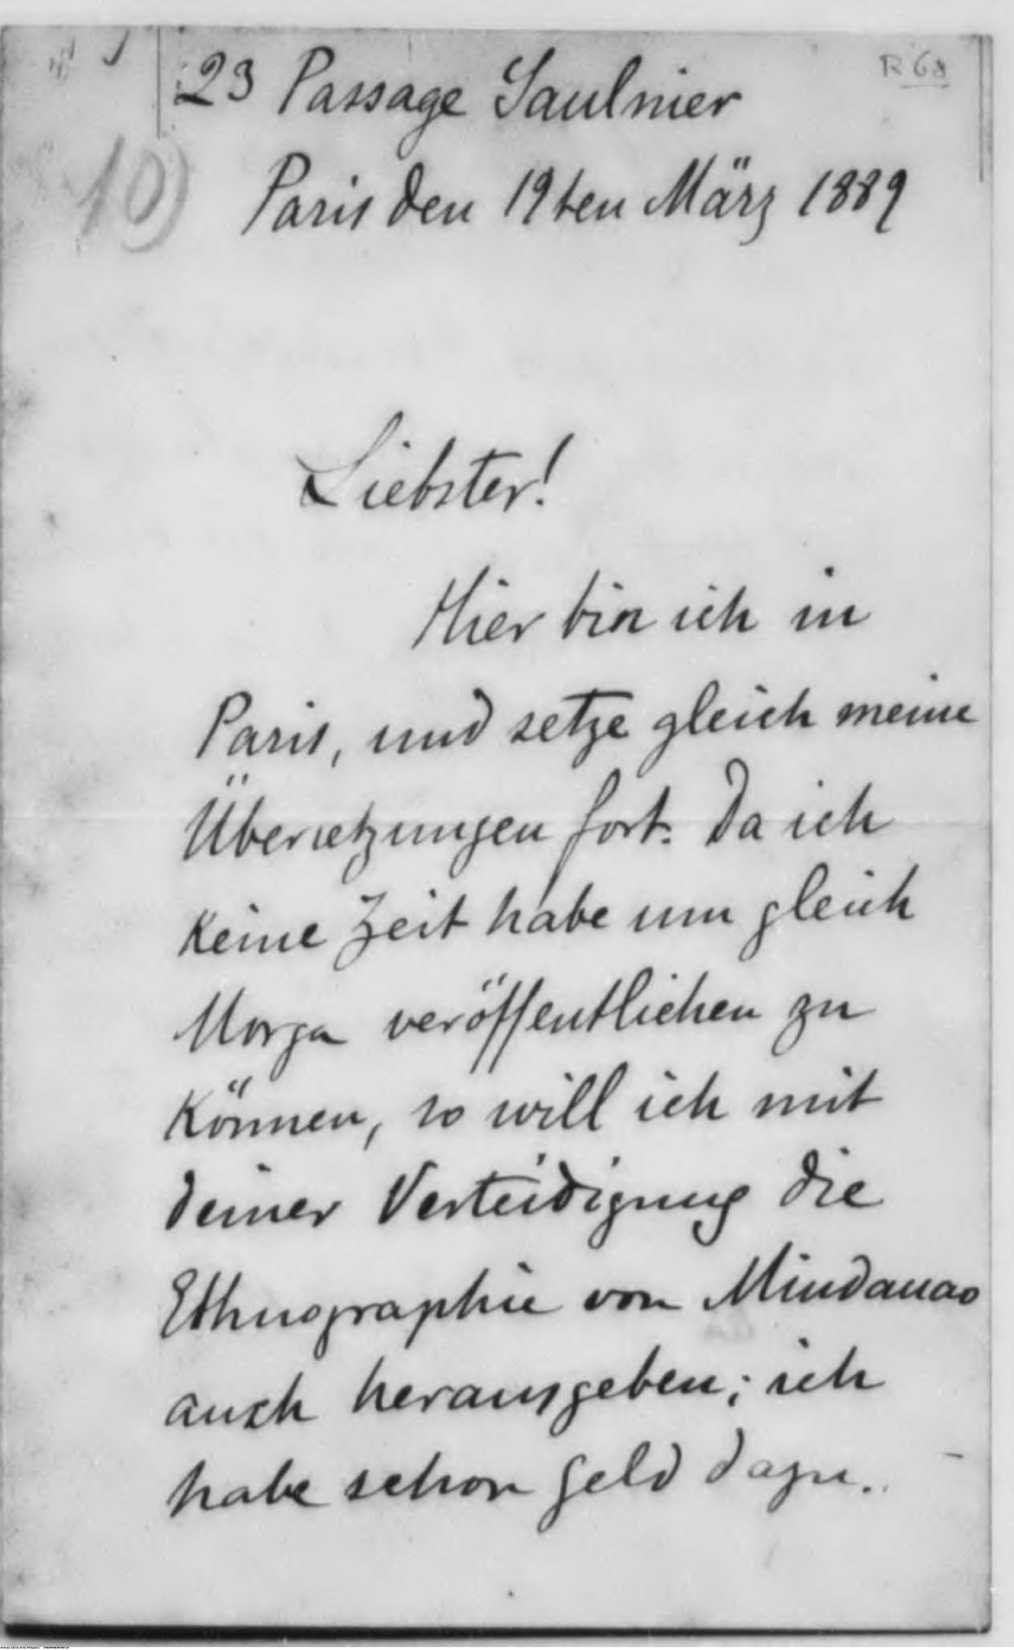 R 68
23 Passage Saulnier
10)
Paris den 19ten März 1889
Liebster!
Hier bin ich in
Paris, und setze gleich meine
Übersetzungen fort. Da ich
keine Zeit habe um gleich
Morga veröffentlichen zu
können, so will ich mit
deiner Verteidigung die
Ethnographie von Mindanao
auch herausgeben; ich
habe schon geld dazu.